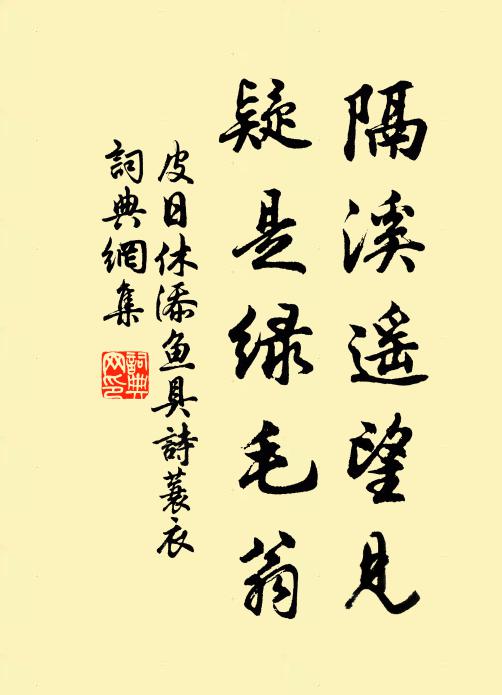 隔溪遥望見
疑是绿毛翁
皮日休添鱼具詩蓑衣
詞典網集
詞典网印